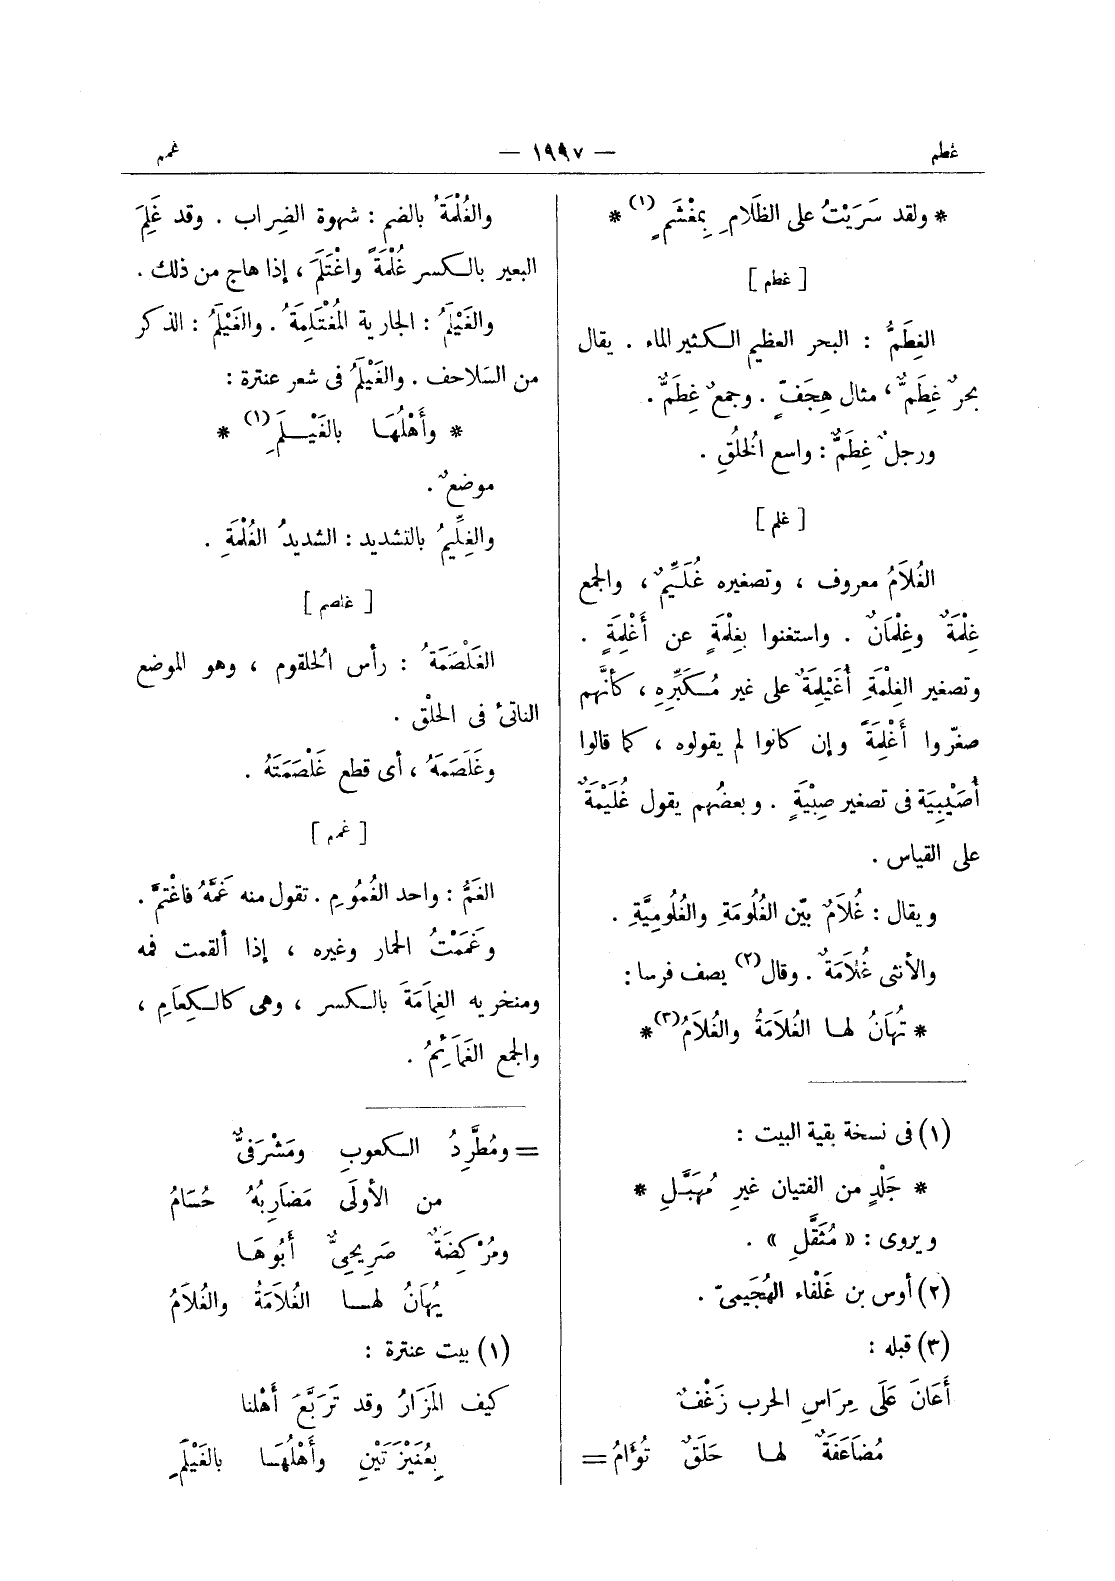 غطم
— ١٩٩٧ —
غمم
* ولقد سَرَيْتُ على الظَلَامِ بِمِغْشَمٍ (١) *
[ غطم ]
الغِطَمُّ : البحر العظيم الكثير الماء . يقال
بحرٌ غِطَمٌّ ، مثال هِجَفٍّ . وجمعٌ غِطَمٌّ .
ورجلٌ غِطَمٌّ : واسع الخُلُقِ .
[ غلم ]
الغُلَامُ معروف ، وتصغيره غُلَيِّمٌ ، والجمع
غِلْمَةٌ وغِلْمَانٌ . واستغنوا بغِلْمَةٍ عن أَغْلِمَةٍ .
وتصغير الغِلْمَةِ أُغَيْلِمَةٌ على غير مُكَبِّرِهِ ، كأنَّهم
صغّروا أَغْلِمَةً وإن كانوا لم يقولوه ، كما قالوا
أُصَيْبِيَة فى تصغير صِبْيَةٍ . وبعضُهم يقول غُلَيْمَةٌ
على القياس .
ويقال : غُلَامٌ بيّن الغُلُومَةِ والغُلُومِيَّةِ .
والأنثى غُلَامَةٌ . وقال (٢) يصف فرسا :
* تُهَانُ لها الغُلَامَةُ والغُلَامُ (٣) *
(١) فى نسخة بقية البيت :
* جَلْدٍ من الفتيان غيرِ مُهَبَّلِ *
ويروى : « مُثَقَّلِ » .
(٢) أوس بن غَلْفاء الهُجَيمىّ .
(٣) قبله :
أَعَانَ عَلَى مِرَاسِ الحرب زَغْفٌ
مُضَاعَفَةٌ لها حَلَقٌ تُؤَامُ =
والغُلْمَةُ بالضم : شهوة الضِراب . وقد غَلِمَ
البعير بالكسر غُلْمَةً واغْتَلَمَ ، إذا هاج من ذلك .
والغَيْلَمُ : الجارية المُغْتَلِمَةُ . والغَيْلَمُ : الذكر
من السَلاحف . والغَيْلَمُ فى شعر عنترة :
* وأَهْلُهَا بالغَيْلَمِ (١) *
موضعٌ .
والغِلِّيمُ بالتشديد : الشديدُ الغُلْمَةِ .
[ غلصم ]
الغَلْصَمَةُ : رأس الحلقوم ، وهو الموضع
الناتئ فى الحلْق .
وغَلَصَمَهُ ، أى قطع غَلْصَمَتَهُ .
[ غمم ]
الغَمُّ : واحد الغُمُومِ . تقول منه غَمَّهُ فاغْتمَّ .
وغَمَمْتُ الحمار وغيره ، إذا ألقمت فمه
ومنخريه الغِمَامَةَ بالكسر ، وهى كالكِعَامِ ،
والجمع الغَمَائِمُ .
= ومُطَّرِدُ الكعوبِ ومَشْرَفىٌّ
من الأولَى مَضَارِبُهُ حُسَامُ
ومُرْكِضَةٌ صَرِيحِىٌّ أَبُوهَا
يُهَانُ لها الغُلاَمَةُ والغُلاَمُ
(١) بيت عنترة :
كيف المَزَارُ وقد تَرَبَّعَ أَهْلنا
بِعُنَيْزَتَيْنِ وأَهْلُهَا بالغَيْلَمِ